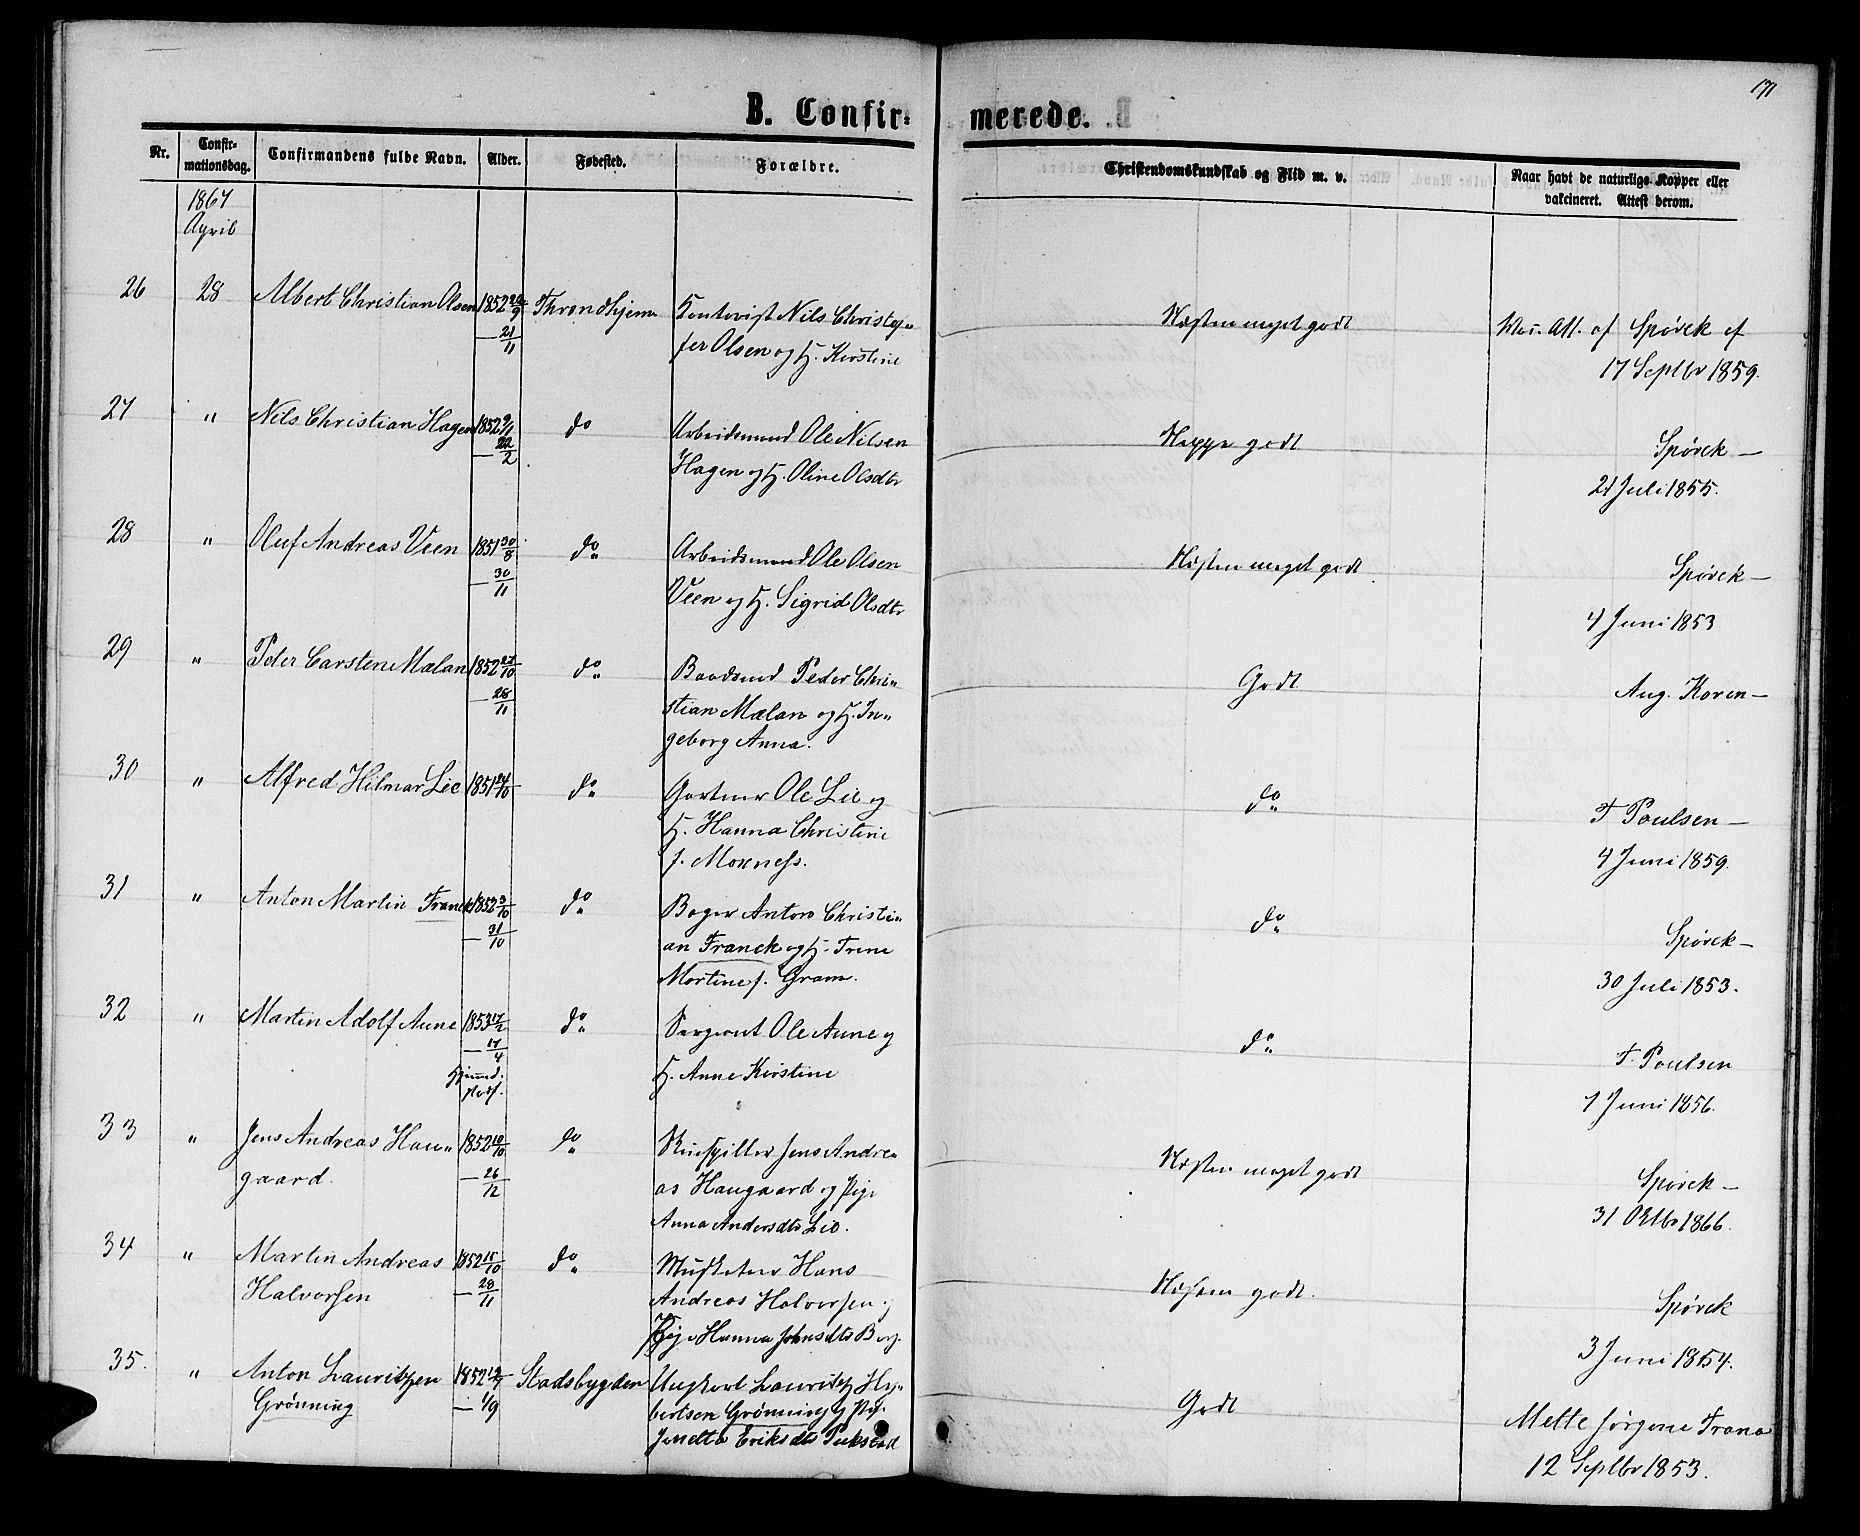 171
B. Confir- merede.
Nr. Confir- mationsdag. Confirmandens fulde Navn. Alder. Fødested. Forældre. Christendomskundskab og Flid m. v. Naar havt de naturlige Kopper eller vakcineret. Attest derom.
1867
April
26 28 Albert Christian Olsen 1852 Throndhjem Nils Christof- Næsten meget godt Vac. Att. af Spørck af
21/11 fer Olsen og H. Kirstine 17 Septbr 1859.
27 " Nils Christian Hagen 1852 9/1 do Arbeidsmand Ole Nilsen Neppe godt Spørck —
— 22/2 Hagen og H. Oline Olsdtr 21 Juli 1855.
28 " Oluf Andreas Veen 1851 30/8 do Arbeidsmand Ole Olsen Næsten meget godt Spørck —
— 30/11 Veen og H. Sigrid Olsdtr 4 Juni 1853
29 " Peder Carstens Mælan 1852 27/10 do Baadsmd Peder Chri- Godt Aug. Koren —
— 28/11 stian Mælan og H. In-
geborg Anna.
30 " Alfred Hilmar Lie 1851 24/10 do Gartner Ole Lie og do F Poulsen —
H. Hanna Christine 4 Juni 1859.
f. Moxness.
31 " Anton Martin Franck 1852 3/10 do Bager Anton Christi- do Spørck —
— 31/10 an Franck og H. Trine 30 Juli 1853.
Martine f. Gram.
32 " Martin Adolf Aune 1853 17/2 do Sergeant Ole Aune og do F. Poulsen
— 17/4 H. Anne Kirstine 1 Juni 1856.
Hjemmed.
33 " Jens Andreas Hau- 1852 10/10 do Skuespiller Jens Andre- Næsten meget godt Spørck —
gaard. — 26/12 as Haugaard og Pige 31 Oktbr 1866.
Anna Andersdtr Lie.
34 " Martin Andreas 1852 15/10 do Musketeer Hans Næsten godt. Spørck
Halvorsen — 28/11 Andreas Halvorsen og 3 Juni 1854.
Pige Hanna Johnsdtr Berg.
35. " Anton Lauritzen 1852 Stadsbygden Ungkarl Lauritz Hy- Godt Mette Jørgine Frana
Grønning — 1/9 bertsen Grønning og Pige 12 Septbr 1853.
Jonetta Eriksdtr